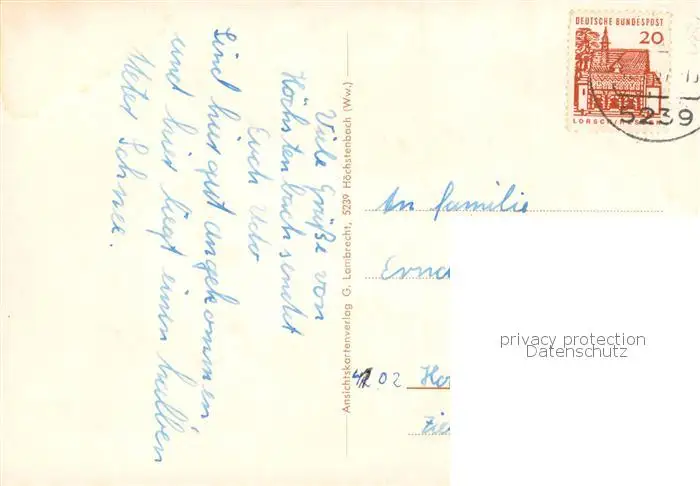 Viele Grüße von
Höchstenbach sendet
Euch Udo
Sind hier gut angekommen
und hier liegt einen halben
Meter Schnee.
Ansichtskartenverlag G. Lambrecht, 5239 Höchstenbach (Ww.)
DEUTSCHE BUNDESPOST
20
LORSCH/HESSEN
5239
An Familie
Erne
4202
privacy protection
Datenschutz